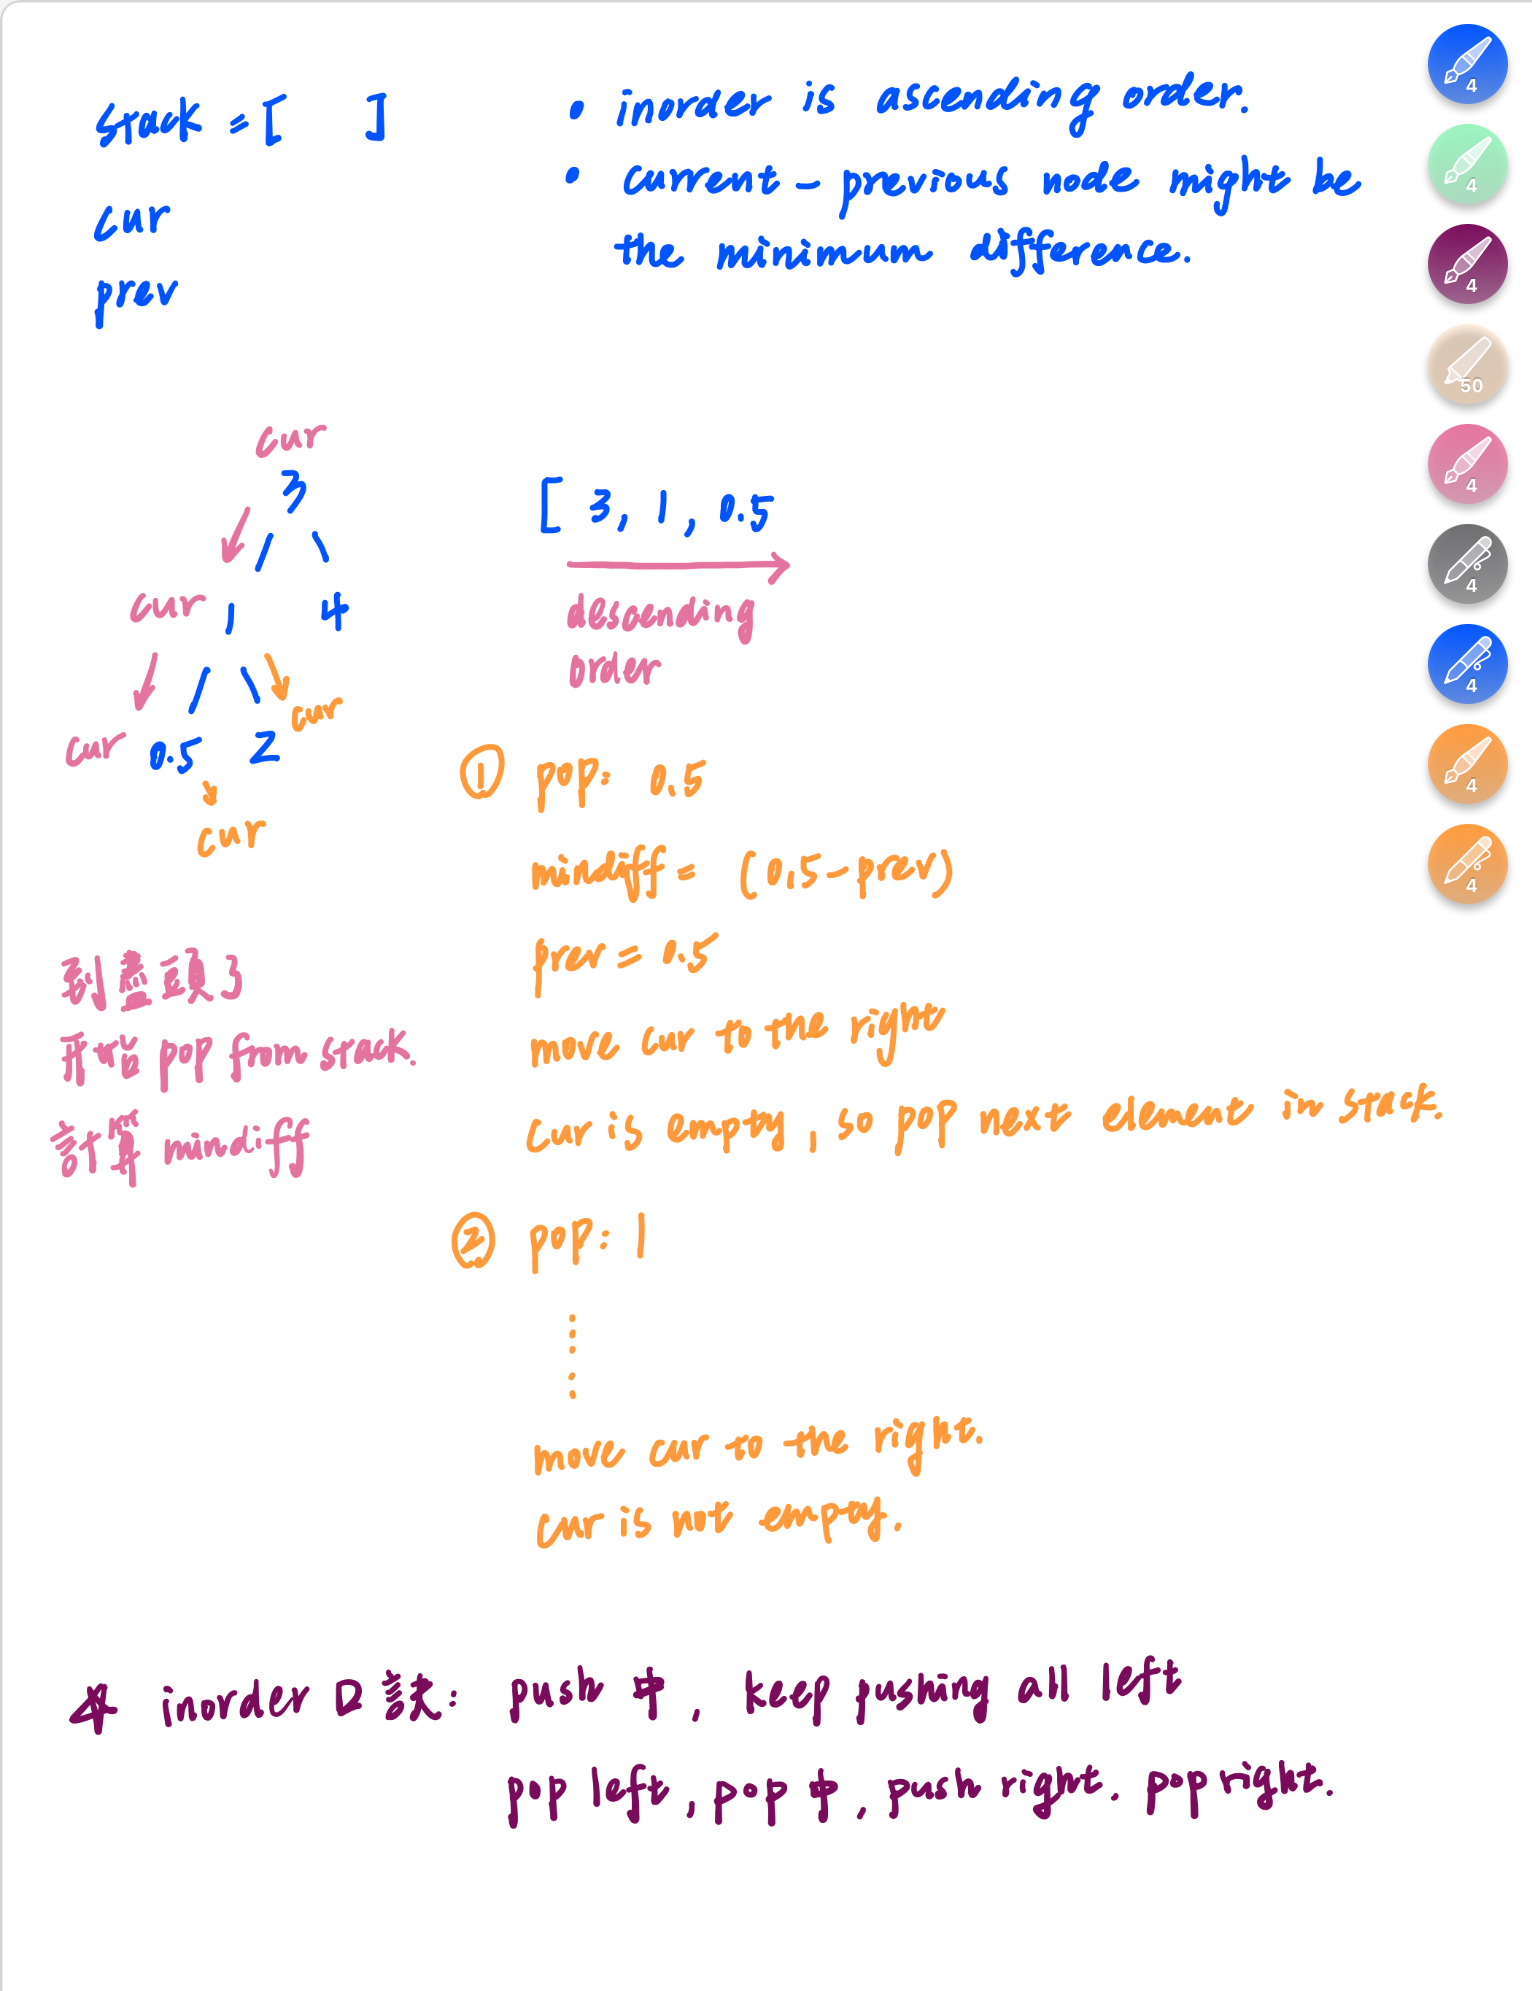 stack = [ ]
cur
prev
• inorder is ascending order.
• current - previous node might be
the minimum difference.
cur
3
cur 1 4
cur 0.5 2 cur
cur
[ 3, 1, 0.5
descending
order
到盡頭了
开始 pop from stack.
計算 mindiff
① pop: 0.5
mindiff = (0.5 - prev)
prev = 0.5
move cur to the right
cur is empty, so pop next element in stack.
② pop: 1
move cur to the right.
cur is not empty.
inorder 口訣: push 中, keep pushing all left
pop left, pop 中, push right. pop right.
4
4
4
50
4
4
4
4
4